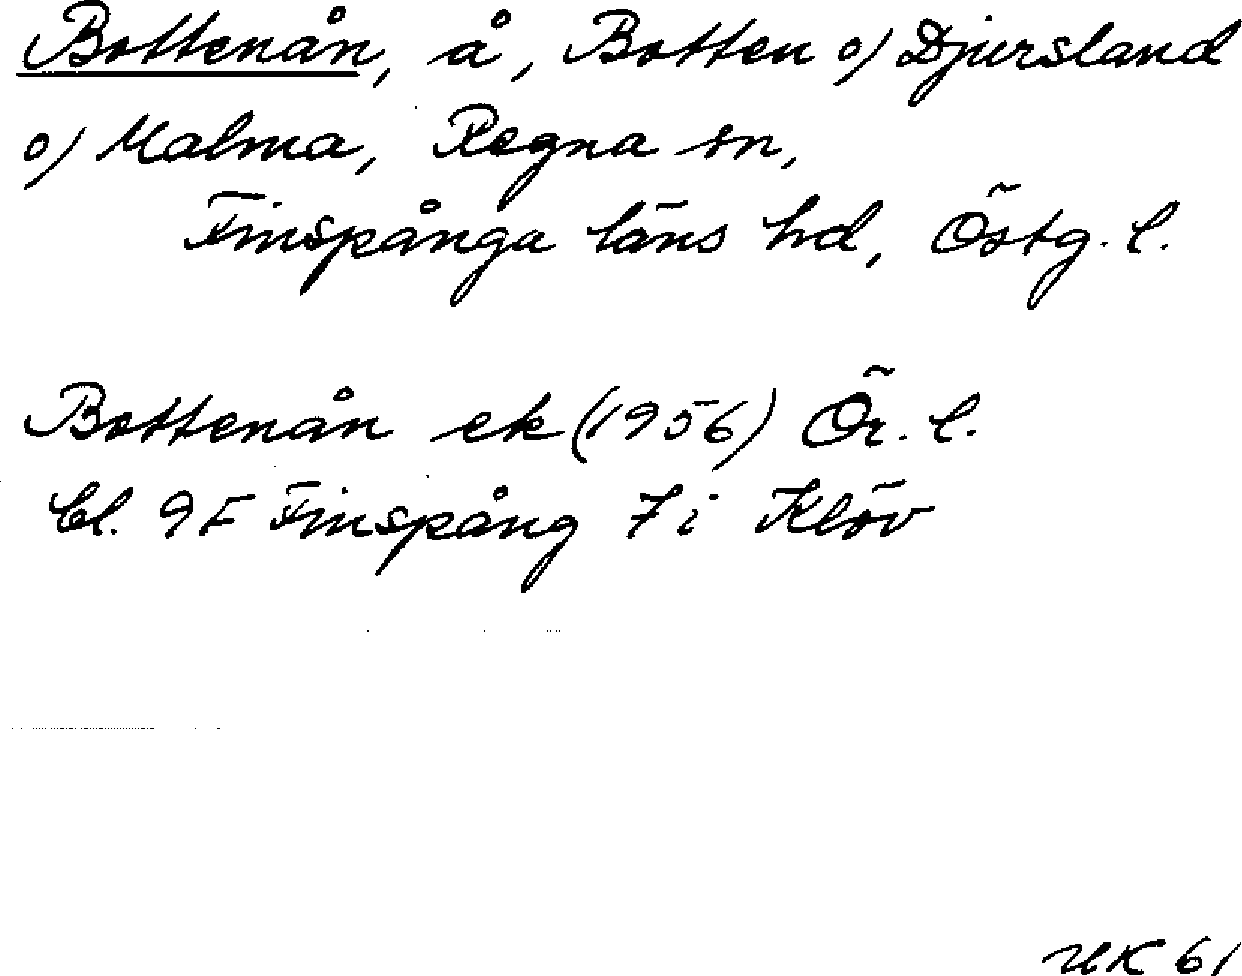 Bottenån, å, Botten o/ Djursland
o/ Malma, Regna sn,
Finspånga läns hd, Östg. l.
Bottenån ek (1956) Ör. l.
bl. 9F Finspång 7i Klöv
HK 61